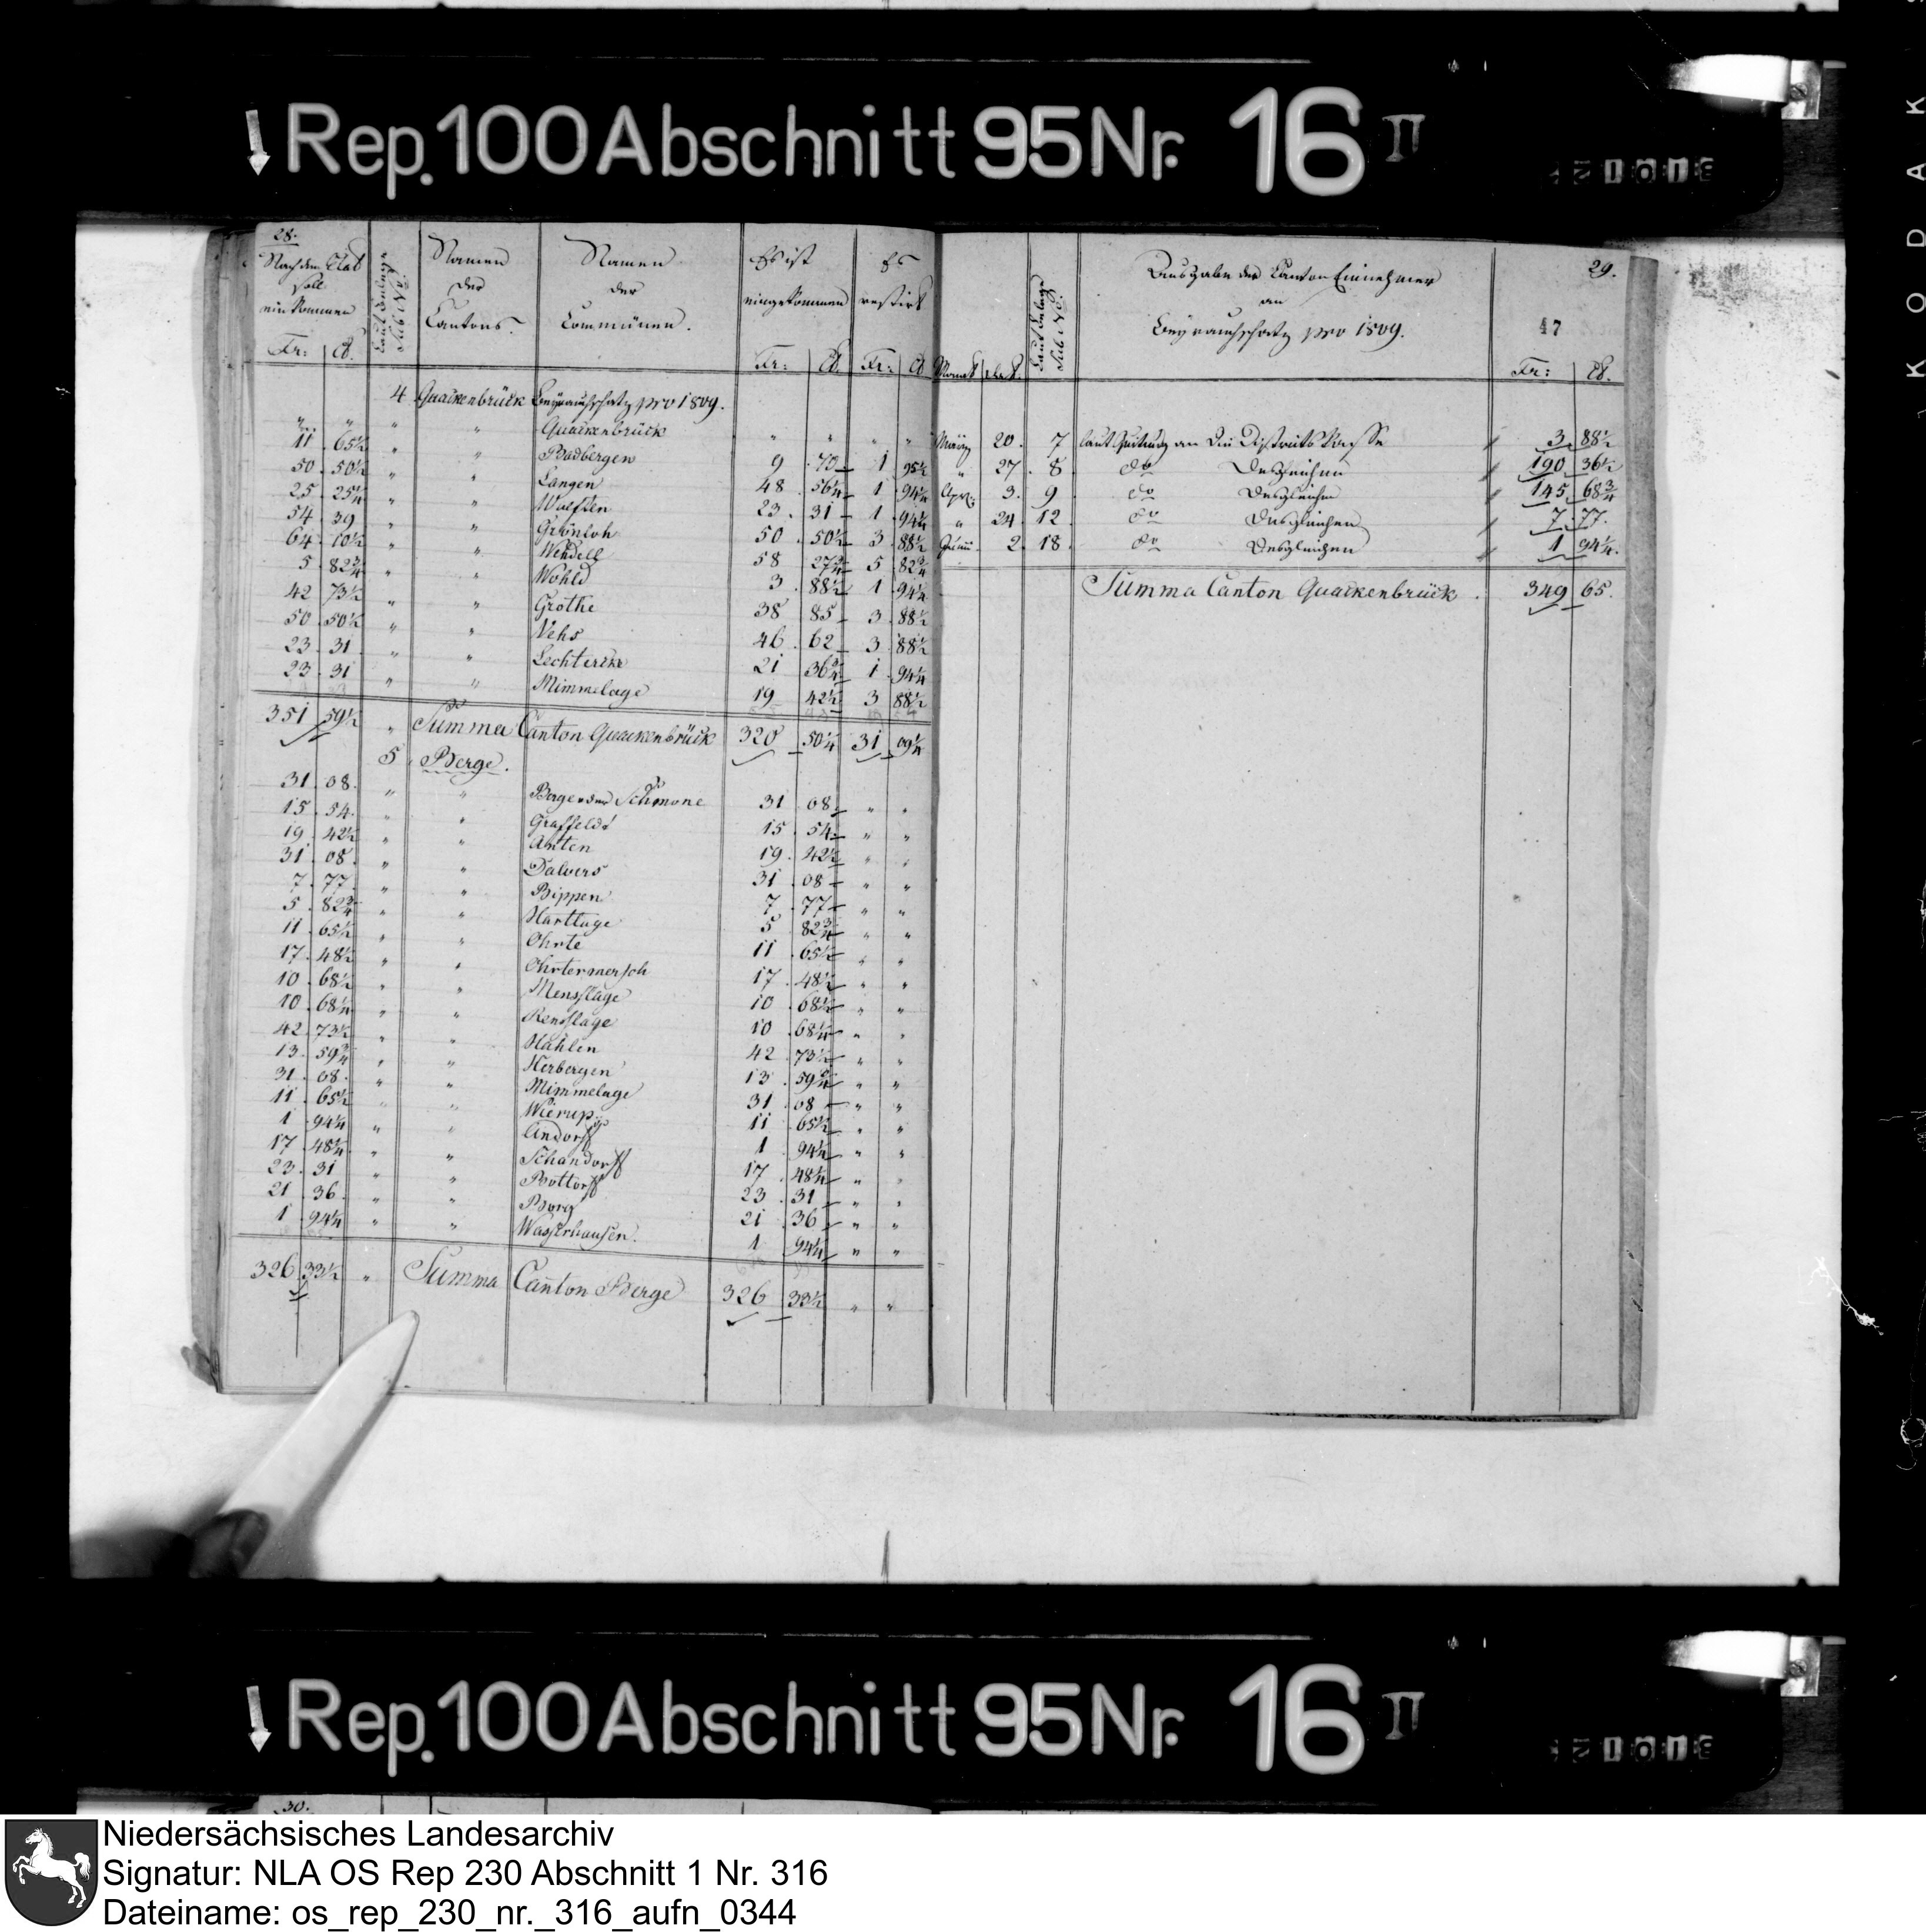 Rep. 100 Abschnitt 95 Nr. 16 II
KODAK
28.
Nach dem Etat soll einkommen
Laut Anlage Sub No.
Namen der Cantons.
Namen der Communen.
Es ist eingekommen
Es restirt
Fr: Ct. Fr: Ct. Fr: Ct.
4 Quackenbrück pro 1809.
" " " " Quackenbrück " " " "
11 65½ " " Badbergen 9 70 1 95½
50 50½ " " Langen 48 56¼ 1 94¼
25 25¼ " " Wulften 23 31 1 94¼
54 39 " " Grönloh 50 50½ 3 88½
64 10½ " " Wehdell 58 27¾ 5 82¾
5 82¾ " " Wohld 3 88½ 1 94¼
42 73½ " " Grothe 38 85 3 88½
50 50½ " " Vehs 46 62 3 88½
23 31 " " Lechtercke 21 36¾ 1 94¼
23 31 " " Mimmelage 19 42½ 3 88½
351 59½ " Summa Canton Quackenbrück 320 50¼ 31 09¼
5 Berge.
31 08 " " Berge und Schmone 31 08 " "
15 54 " " Graffeld 15 54 " "
19 42½ " " Anten 19 42½ " "
31 08 " " Dalvers 31 08 " "
7 77 " " Bippen 7 77 " "
5 82¾ " " Hartlage 5 82¾ " "
11 65½ " " Ohrte 11 65½ " "
17 48½ " " Ohrtermersch 17 48½ " "
10 68½ " " Menslage 10 68½ " "
10 68¼ " " Renslage 10 68¼ " "
42 73½ " " Hahlen 42 73½ " "
13 59¾ " " Herbergen 13 59¾ " "
31 08 " " Mimmelage 31 08 " "
11 65½ " " Wierup 11 65½ " "
1 94¼ " " Andorff 1 94¼ " "
17 48¼ " " Schandorff 17 48¼ " "
23 31 " " Bottorff 23 31 " "
21 36 " " Borg 21 36 " "
1 94¼ " " Wasserhausen. 1 94¼ " "
326 33½ " Summa Canton Berge 326 33½ " "
29.
Ausgabe der Canton Einnehmer
an
pro 1809.
47
Monat
Laut Anlage Sub No.
Fr: Ct.
März 20. 7 laut Quitung an die Districts Kasse 3 88½
" 27. 8 do desgleichen 190 36½
Apr: 3. 9 do desgleichen 145 68¾
" 24. 12 do desgleichen 7 77.
Juni 2. 18 do desgleichen 1 94¼.
Summa Canton Quackenbrück. 349 65.
Rep. 100 Abschnitt 95 Nr. 16 II
30.
Niedersächsisches Landesarchiv
Signatur: NLA OS Rep 230 Abschnitt 1 Nr. 316
Dateiname: os_rep_230_nr._316_aufn_0344